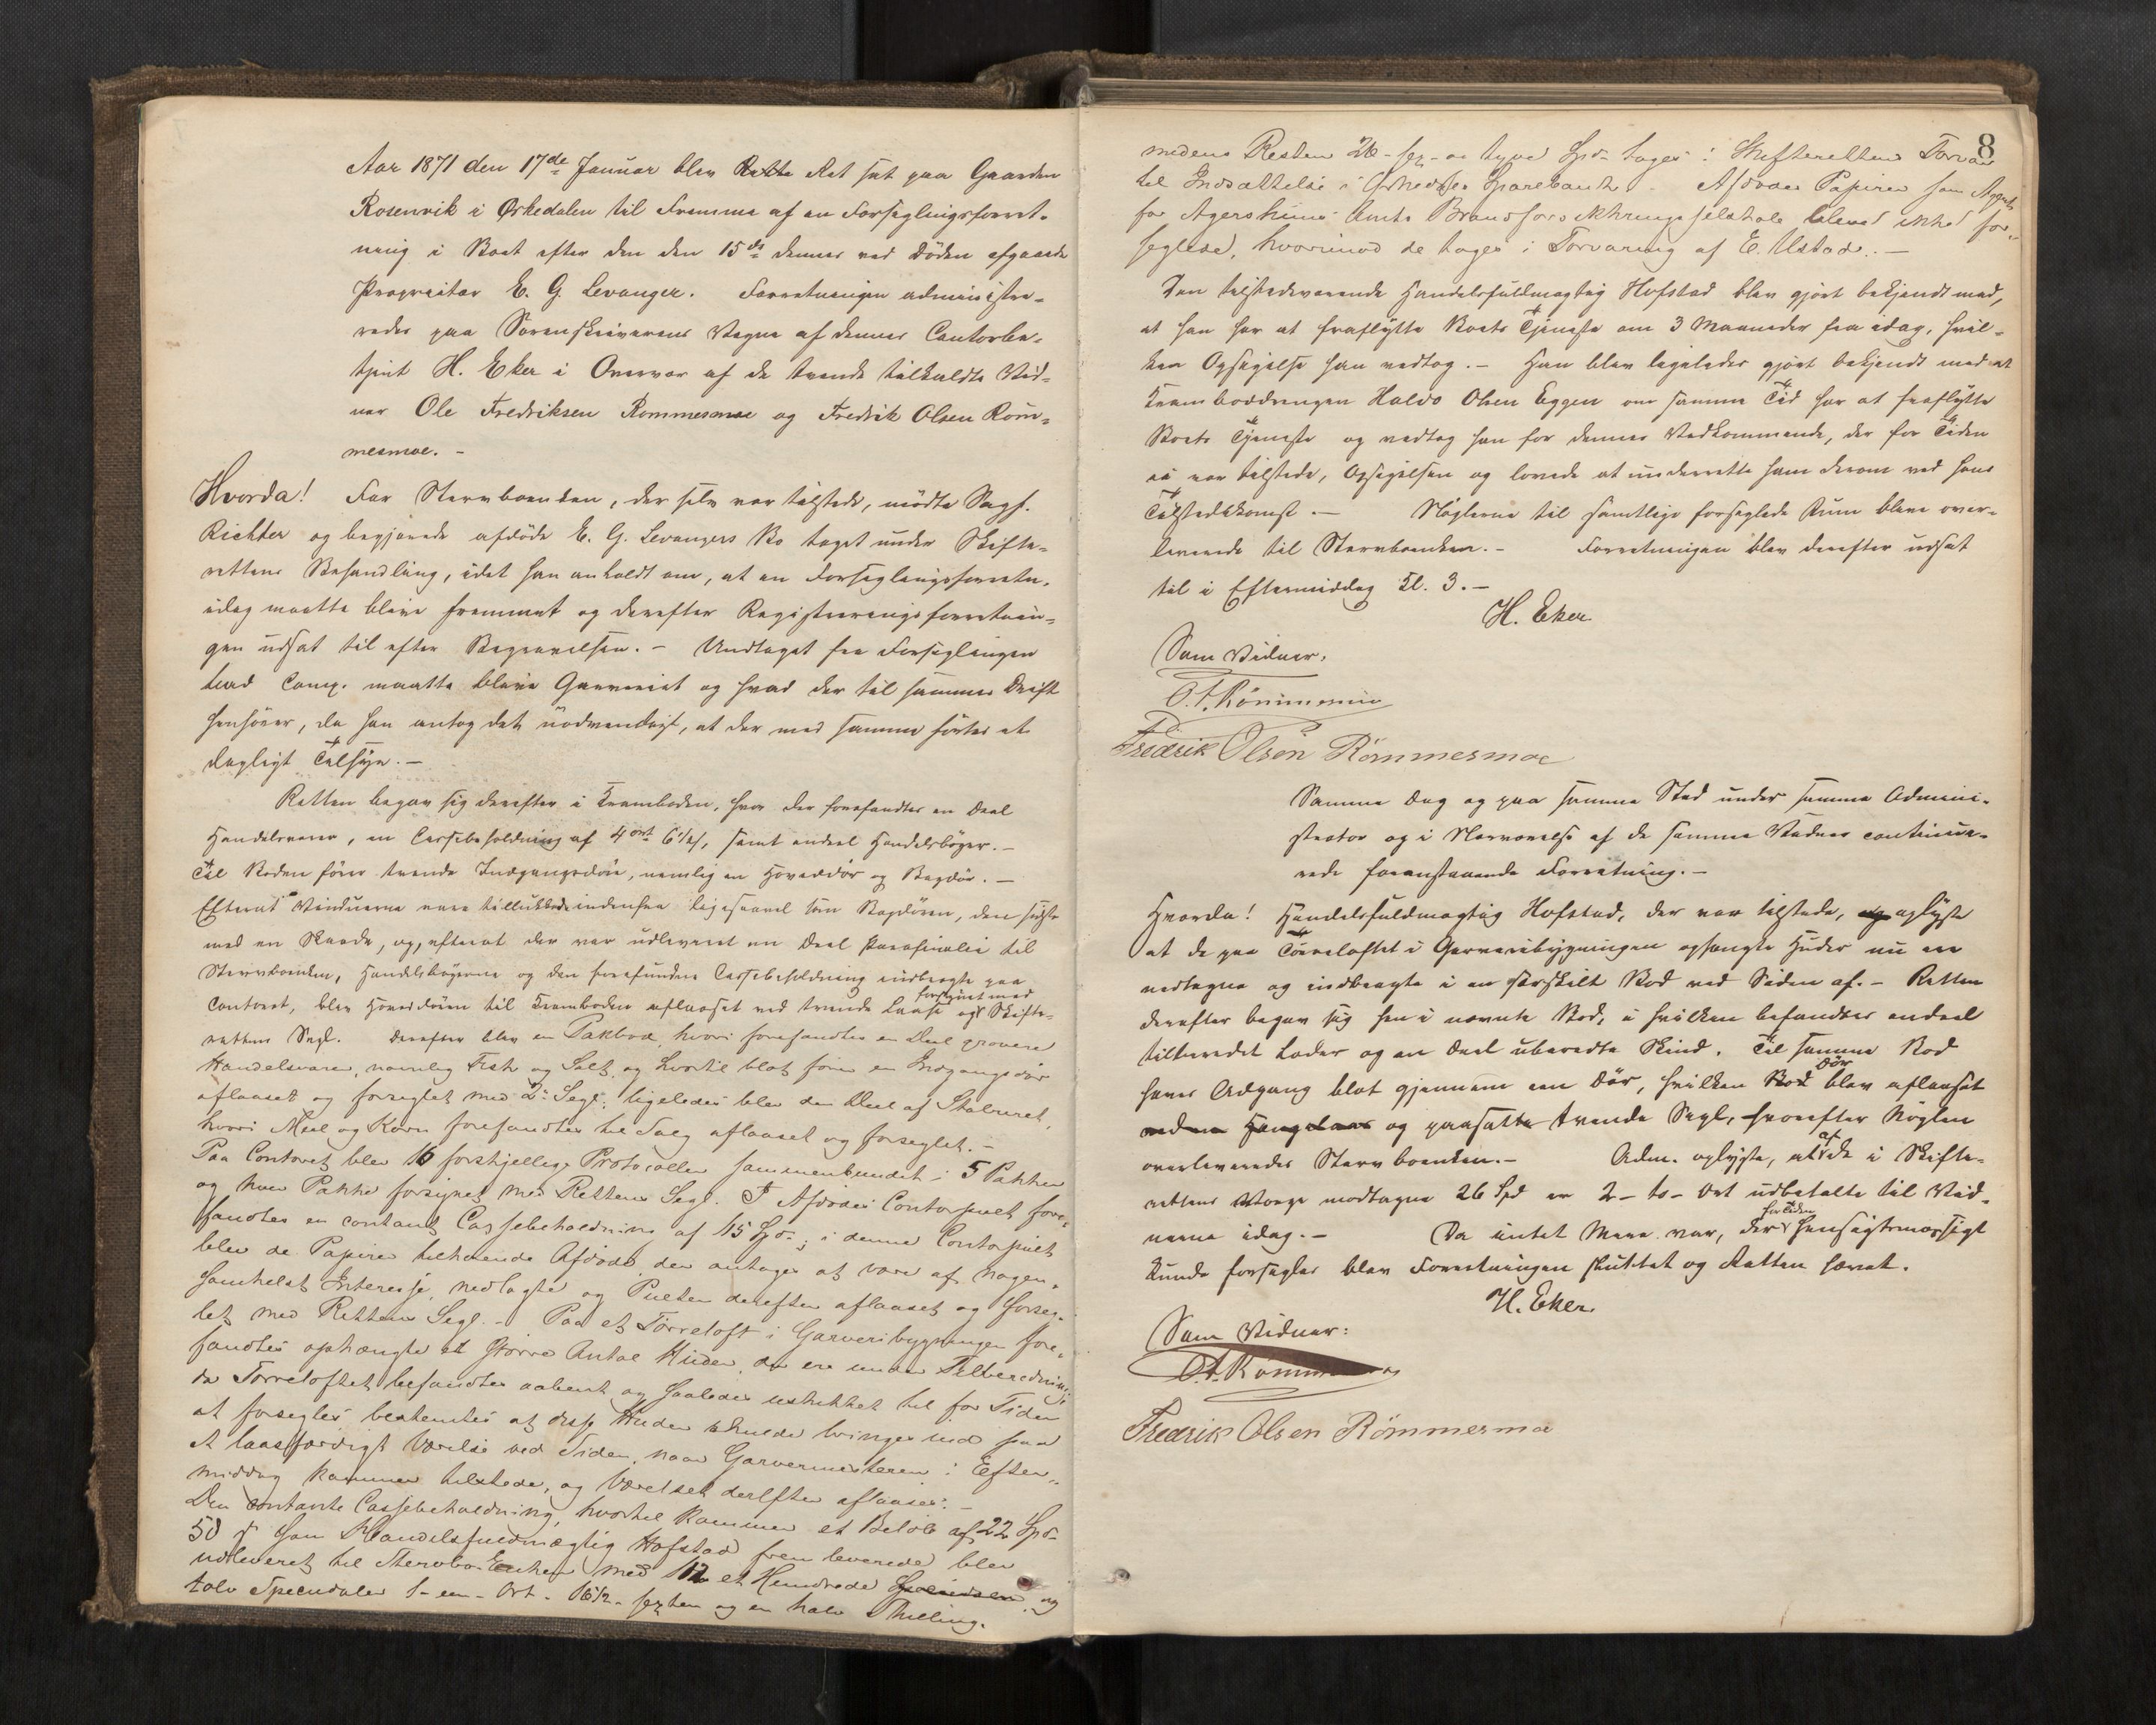 Aar 1871 den 17de Januar blev Rette Ret sat paa Gaarden
Rosenvik i Ørkedalen til Fremme af en Forseglingsforret-
ning i Boet efter den den 15de dennes ved Døden afgaaede
Proprietær E. G. Levanger. Forretningen administre-
redes paa Sorenskriverens Vegne af dennes Contorbe-
tjent H. Eker i Overvær af de tvende tilkaldte Vid-
ner Ole Fredriksen Rommesmoe og Fredrik Olsen Røm-
mesmoe. -
Hvorda! For Stervboenken, der selv var tilstede, mødte Sagf.
Richter og begjærede afdøde E. G. Levangers Bo taget under Skifte-
rettens Behandling, idet han anholdt om, at en Forseglingsforretn.
idag maatte blive fremmet og derefter Registreringsforretnin-
gen udsat til efter Begravelsen. - Undtaget fra Forseglingen
bad Comp. maatte blive Garveriet og hvad der til sammes Drift
henhører, da han antog det nødvendigt, at der med samme førtes et
dagligt Tilsyn. -
Retten begav sig derefter i Kramboden, hvor der forefandtes en Deel
Handelsvarer, en Cassebeholdning af 4 ort 6 1/2 s, samt endeel Handelsbøger. -
Til Boden fører tvende Indgangsdøre, nemlig en Hoveddør og Bagdør. -
Efterat Vinduerne vare tillukkede indenfra ligesaavel som Bagdøren, den sidste
med en Skaade, og, efterat der var udleveret en Deel Parafinolie til
Stervboenken, Handelsbøgerne og den forefundne Cassebeholdning indbragte paa
Contoret, blev Hoveddøren til Kramboden aflaaset ved tvende Laase og forsynet med Skifte-
rettens Segl. Derefter blev en Pakbod, hvori forefandtes en Deel grovere
Handelsvarer, navnlig Fisk og Salt, og hvortil blot fører en Indgangsdør
aflaaset og forseglet med 2de Segl; ligeledes blev den Deel af Stalruret,
hvori Meel og Korn forefandtes til Salg aflaaset og forseglet. -
Paa Contoret blev 16 forskjellige Protocoller sammenbundet i 5 Pakker
og hver Pakke forsynet med Rettens Segl. I Afdødes Contorpult fore-
fandtes en contant Cassebeholdning af 115 Spd.; i denne Contorpult
blev de Papirer tilhørende Afdøde, der antages at være af nogen-
somhelst Interesse, nedlagte og Pulten derefter aflaaset og forseg-
let med Rettens Segl. - Paa et Tørreloft i Garveribygningen fore-
fandtes ophængte et større Antal Huder, der ere under Tilberedning;
da Tørreloftet befandtes aabent og saaledes uskikket til for Tiden
at forsegles bestemtes at disse Huder skulde bringes ind paa
et laasfærdigt Værelse ved Siden, naar Garvermesteren i Efter-
middag kommer tilstede, og Værelset derefter aflaases. -
Den contante Cassebeholdning, hvortil kommer et Beløb af 22 Spd.
50 s som Handelsfuldmægtig Hofstad fremleverede blev
udleveret til Stervbo Enken med 112 et Hundrede Speciedaler og
tolv Speciedaler 1- en - Ort - 16 1/2 - sexten og en halv Skilling.
8
medens Resten 26 - sex - og tyve Spd. tages i Skifterettens Forvar
til Indsættelse i Ørkedals Sparebank. - Afdødes Papirer som Agent
for Agershuus Amts Brandforsikkringsselskab bleve ikke for-
seglede, hvorimod de toges i Forvaring af E. Ustad. -
Den tilstedeværende Handelsfuldmægtig Hofstad blev gjort bekjendt med,
at han har at fraflytte Boets Tjeneste om 3 Maaneder fra idag, hvil-
ken Opsigelse han vedtog. - Han blev ligeledes gjort bekjendt med at
Kramboddrengen Haldo Olsen Eggen om samme Tid har at fraflytte
Boets Tjeneste og vedtog han for dennes Vedkommende, der for Tiden
ei var tilstede, Opsigelsen og lovede at underrette ham derom ved hans
Tilstedekomst. - Nøglerne til samtlige forseglede Rum bleve over-
leverede til Stervboenken. - Forretningen blev derefter udsat
til i Eftermiddag Kl. 3. -
H. Eker
Som Vidner:
O. F. Rømmesmo
Fredrik Olsen Rømmesmoe
Samme Dag og paa samme Sted under samme Admini-
strator og i Nærværelse af de samme Vidner continue-
rede foranstaaende Forretning. -
Hvorda! Handelsfuldmægtig Hofstad, der var tilstede, og oplyste
at de paa Tørreloftet i Garveribygningen ophængte Huder nu ere
nedtagne og indbragte i en særskilt Bod ved Siden af. - Retten
derefter begav sig hen i nævnte Bod, i hvilken befandtes endeel
tilberedet Læder og en Deel uberedte Skind. Til samme Bod
haves Adgang blot gjennem een Dør, hvilken Bod Dør blev aflaaset
med en Hængelaas og paasatte tvende Segl, hvorefter Nøglen
overleveredes Stervboenken. - Adm. oplyste, at af de i Skifte-
rettens Værge modtagne 26 Spd er 2 - to - Ort udbetalte til Vid-
nerne idag. - Da intet Mere var, der for Tiden hensigtsmæssigt
kunde forsegles blev Forretningen sluttet og Retten hævet.
H. Eker
Som Vidner:
O. F. Rømmesmo
Fredrik Olsen Rømmesmoe